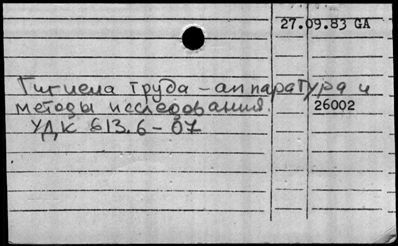 27.09.83 GA
Гигиена труда – аппаратура и
методы исследования.
26002
УДК 613.6-07